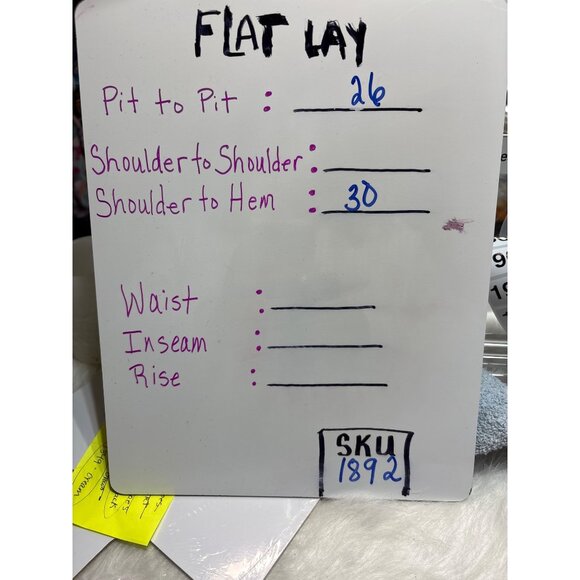 FLAT LAY
Pit to Pit : 26
Shoulder to Shoulder :
Shoulder to Hem : 30
Waist :
Inseam :
Rise :
SKU
1892
cream